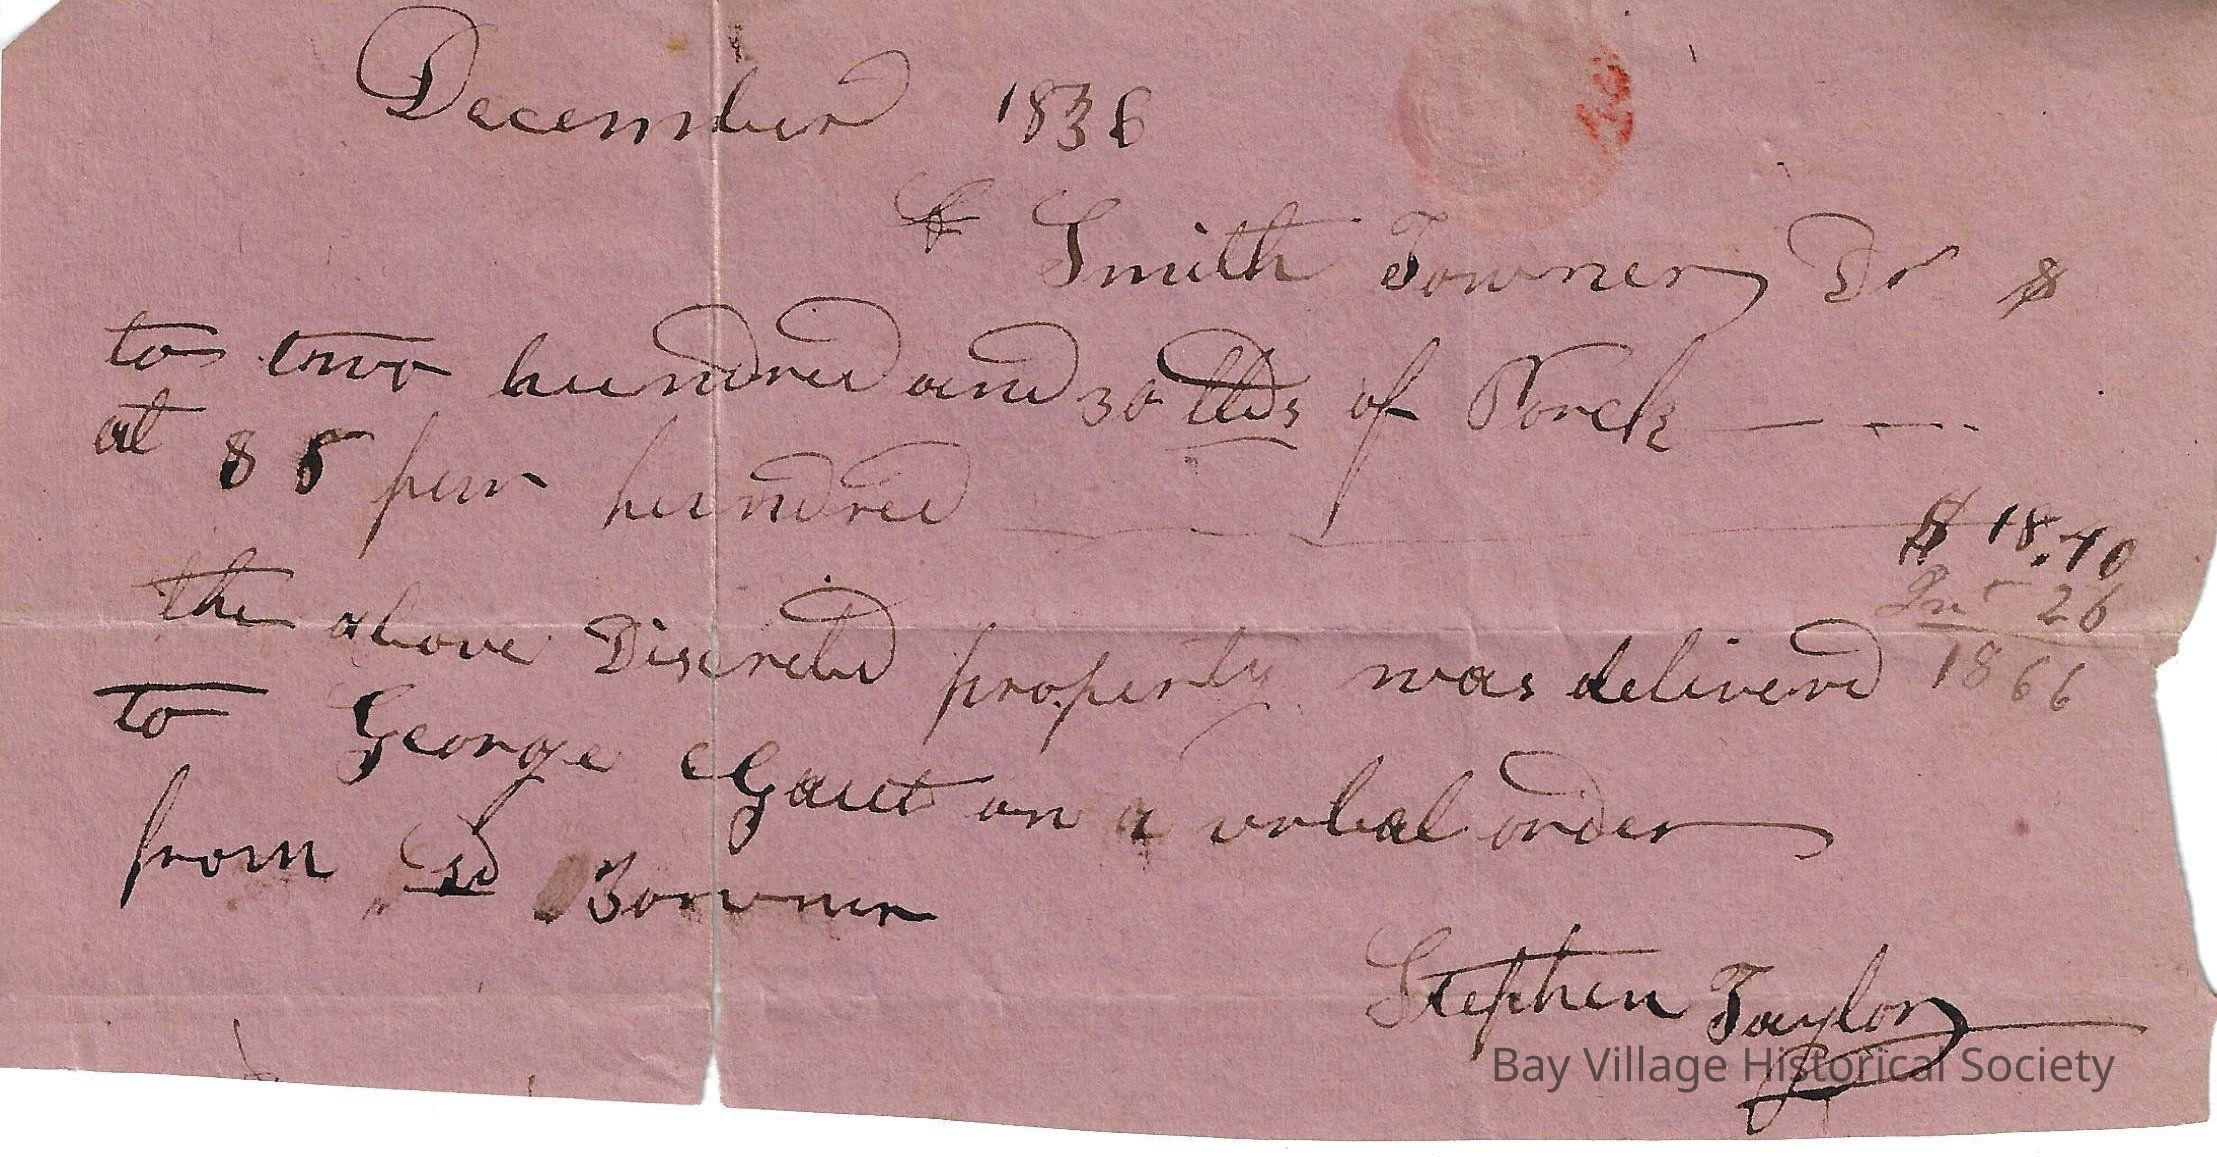 December 1836
Smith Towner Dr $
to two hundred and 30 lbs of Porck
at 8 $ per hundred
$ 18.40
Int 26
the above Discrebd property was deliverd 18 66
to George Gaut on a verbal order
from sd Towner
Stephen Taylor
Bay Village Historical Society